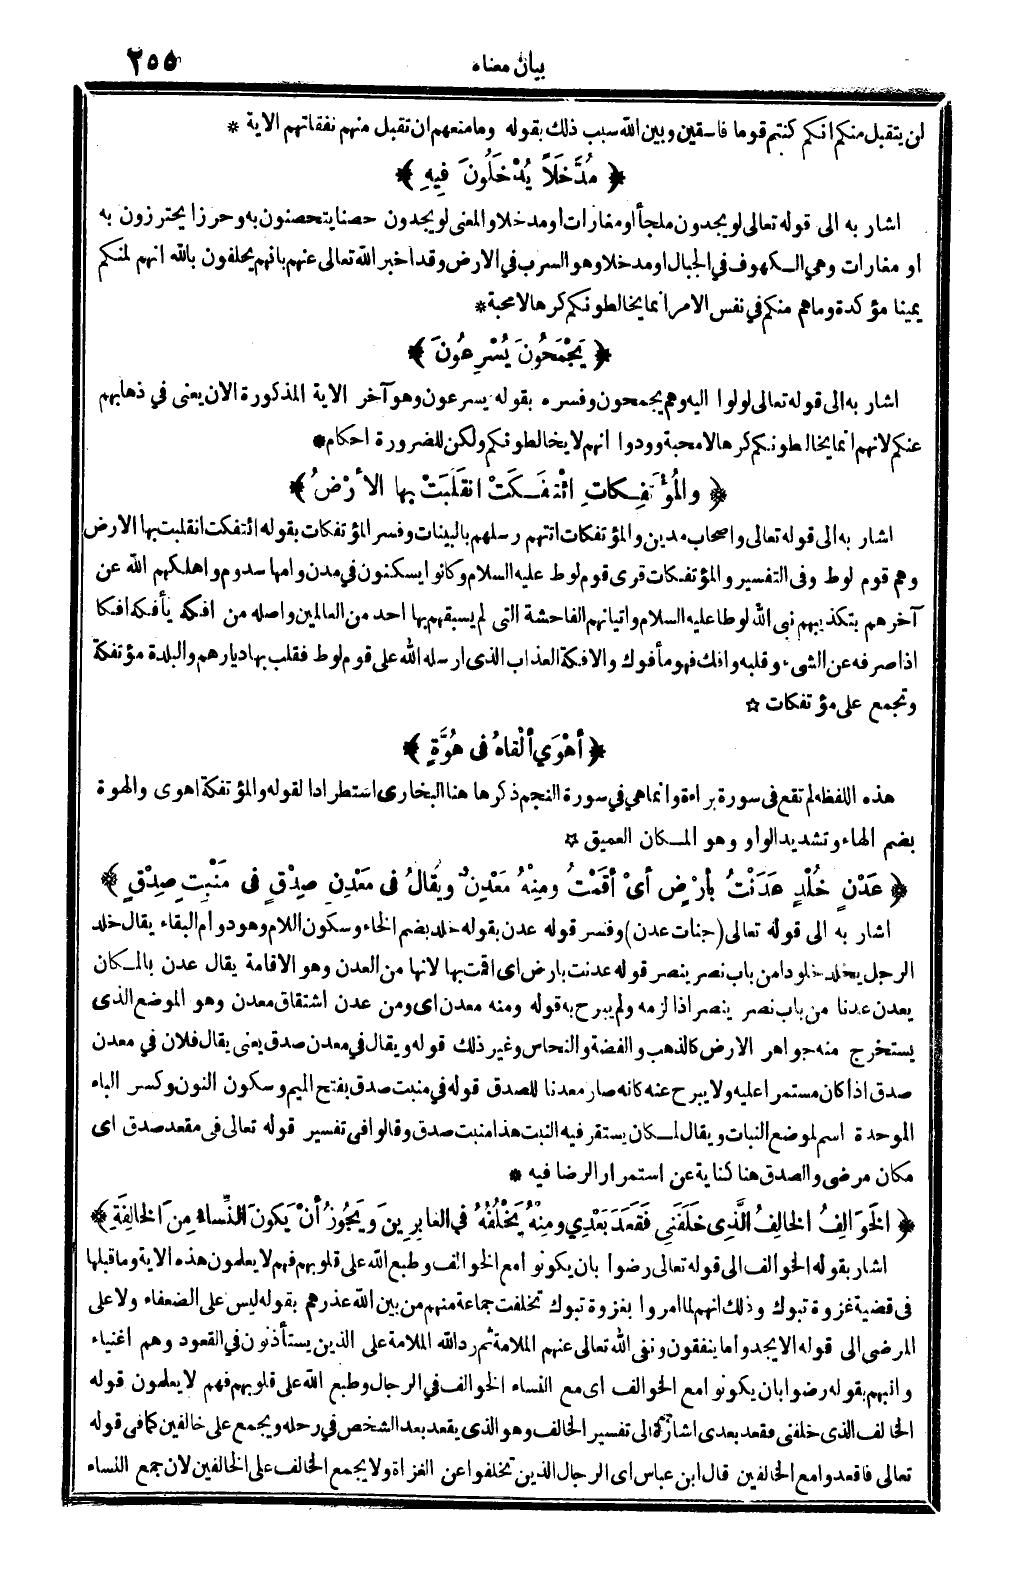 بيان معناه ٢٥٥
لن يتقبل منكم انكم كنتم قوما فاسقين وبين الله سبب ذلك بقوله وما منعهم ان تقبل منهم نفقاتهم الاية *
﴿ مُدَّخَلاً يُدْخَلُونَ فِيهِ ﴾
اشار به الى قوله تعالى لو يجدون ملجأ او مغارات او مدخلا والمعنى لو يجدون حصنا يتحصنون به وحرزا يحترزون به
او مغارات وهي الكهوف في الجبال او مدخلا وهو السرب في الارض وقد اخبر الله تعالى عنهم بانهم يحلفون بالله انهم لمنكم
يمينا مؤكدة وما هم منكم في نفس الامر انما يخالطونكم كرها لا محبة *
﴿ يَجْمَحُونَ يُسْرِعُونَ ﴾
اشار به الى قوله تعالى لولوا اليه وهم يجمحون وفسره بقوله يسرعون وهو آخر الاية المذكورة الان يعنى في ذهابهم
عنكم لانهم انما يخالطونكم كرها لا محبة وودوا انهم لا يخالطونكم ولكن للضرورة احكام *
﴿ والمُؤْتَفِكاتِ ائْتَفَكَتْ انقَلَبَتْ بها الأرْضُ ﴾
اشار به الى قوله تعالى واصحاب مدين والمؤتفكات اتتهم رسلهم بالبينات وفسر المؤتفكات بقوله ائتفكت انقلبت بها الارض
وهم قوم لوط وفى التفسير والمؤتفكات قرى قوم لوط عليه السلام وكانوا يسكنون في مدن وامها سدوم واهلكهم الله عن
آخرهم بتكذيبهم نبى الله لوطا عليه السلام واتيانهم الفاحشة التى لم يسبقهم بها احد من العالمين واصله من افكه يأفكه افكا
اذا صرفه عن الشىء وقلبه وافك فهو مأفوك والافكة العذاب الذى ارسله الله على قوم لوط فقلب بها ديارهم والبلدة مؤتفكة
وتجمع على مؤتفكات ☆
﴿ أهْوَي ألْقاهُ فى هُوَّةٍ ﴾
هذه اللفظه لم تقع فى سورة براءة وانما هي في سورة النجم ذكرها هنا البخارى استطرادا لقوله والمؤتفكة اهوى والهوة
بضم الهاء وتشديد الواو وهو المكان العميق ☆
﴿ عَدْنٍ خُلْدٍ عَدَنْتُ بأرْضٍ أىْ أقَمْتُ ومِنْهُ مَعْدِنٌ ويُقالُ فى مَعْدِنِ صِدْقٍ فى مَنْبِتِ صِدْقٍ ﴾
اشار به الى قوله تعالى (جنات عدن) وفسر قوله عدن بقوله خلد بضم الخاء وسكون اللام وهو دوام البقاء يقال خلد
الرجل يخلد خلودا من باب نصر ينصر قوله عدنت بارض اى اقمت بها لانها من العدن وهو الاقامة يقال عدن بالمكان
يعدن عدنا من باب نصر ينصر اذا لزمه ولم يبرح به قوله ومنه معدن اى ومن عدن اشتقاق معدن وهو الموضع الذى
يستخرج منه جواهر الارض كالذهب والفضة والنحاس وغير ذلك قوله ويقال في معدن صدق يعنى يقال فلان في معدن
صدق اذا كان مستمرا عليه ولا يبرح عنه كانه صار معدنا للصدق قوله في منبت صدق بفتح الميم وسكون النون وكسر الباء
الموحدة اسم لموضع النبات ويقال لمكان يستقر فيه النبت هذا منبت صدق وقالوا فى تفسير قوله تعالى فى مقعد صدق اى
مكان مرضى والصدق هنا كناية عن استمرار الرضا فيه *
﴿ الخَوَالِفُ الخالِفُ الَّذِى خَلَفَنِي فَقَعَدَ بَعْدِي ومِنْهُ يَخْلُفُهُ في الغابِرِينَ ويَجُوزُ أنْ يَكونَ النِّساءُ مِنَ الخالِفَةِ ﴾
اشار بقوله الخوالف الى قوله تعالى رضوا بان يكونوا مع الخوالف وطبع الله على قلوبهم فهم لا يعلمون هذه الاية وما قبلها
فى قضية غزوة تبوك وذلك انهم لما امروا بغزوة تبوك تخلفت جماعة منهم من بين الله عذرهم بقوله ليس على الضعفاء ولا على
المرضى الى قوله الا يجدوا ما ينفقون ونفى الله تعالى عنهم الملامة ثم رد الله الملامة على الذين يستأذنون في القعود وهم اغنياء
وانبهم بقوله رضوا بان يكونوا مع الخوالف اى مع النساء الخوالف في الرجال وطبع الله على قلوبهم فهم لا يعلمون قوله
الخالف الذى خلفنى فقعد بعدى اشار به الى تفسير الخالف وهو الذى يقعد بعد الشخص في رحله ويجمع على خالفين كما فى قوله
تعالى فاقعدوا مع الخالفين قال ابن عباس اى الرجال الذين تخلفوا عن الغزاة ولا يجمع الخالف على الخالفين لان جمع النساء